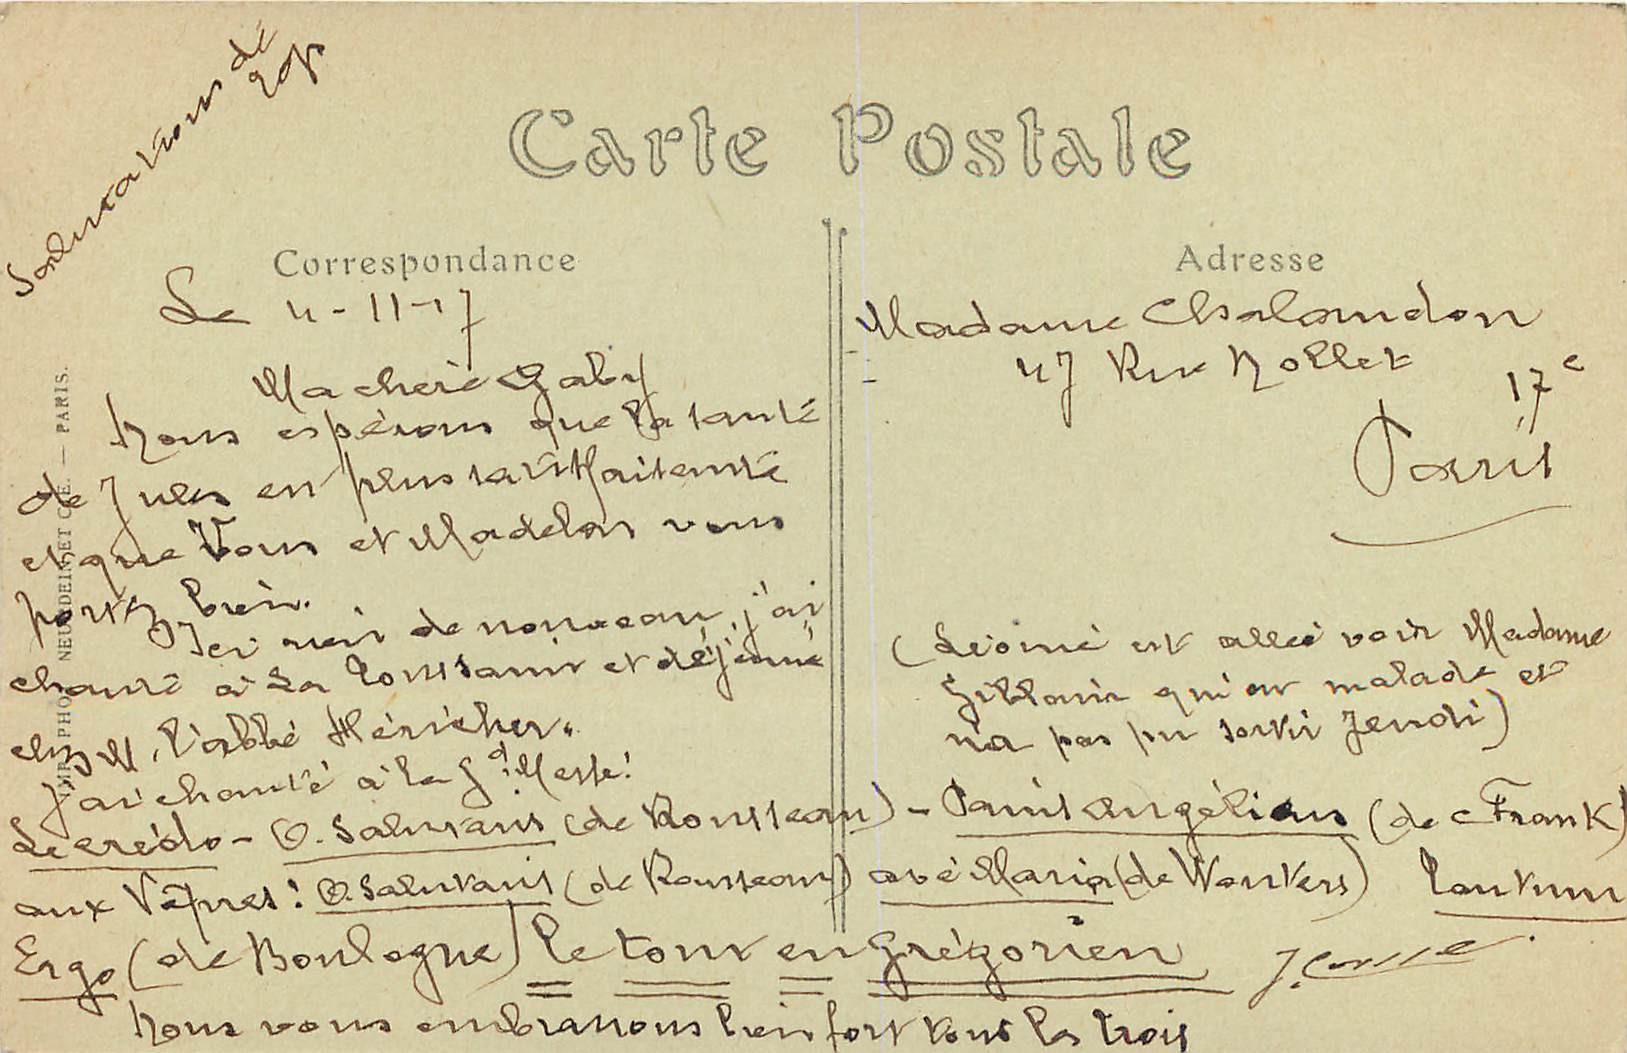 Salutations de
Carte Postale
Correspondance
Adresse
Le 4-11-17
Ma chère Gaby
Nous espérons que la santé
de Jules en plus satisfaisante
et que Vous et Madelon vous
portez bien.
Ici rien de nouveau, j'ai
chanté à La Toussaint et déjeuné
chez M. l'abbé Héricher.
J'ai chanté à la Gd Messe:
Le crédo - O. Salutaris (de Rousseau) - Panis Angélicus (de Frank)
aux Vêpres: O. Salutaris (de Rousseau) avé Maria (de Wouters) Tantum
Ergo (de Boulogne) le tout en Grégorien
Nous vous embrassons bien fort tous les trois
Madame Chalandon
47 Rue Nollet
17e
Paris
(Léonie est allée voir Madame
qui est malade et
n'a pas pu sortir Jeudi)
IMP. PHOT. NEURDEIN ET CIE. — PARIS.